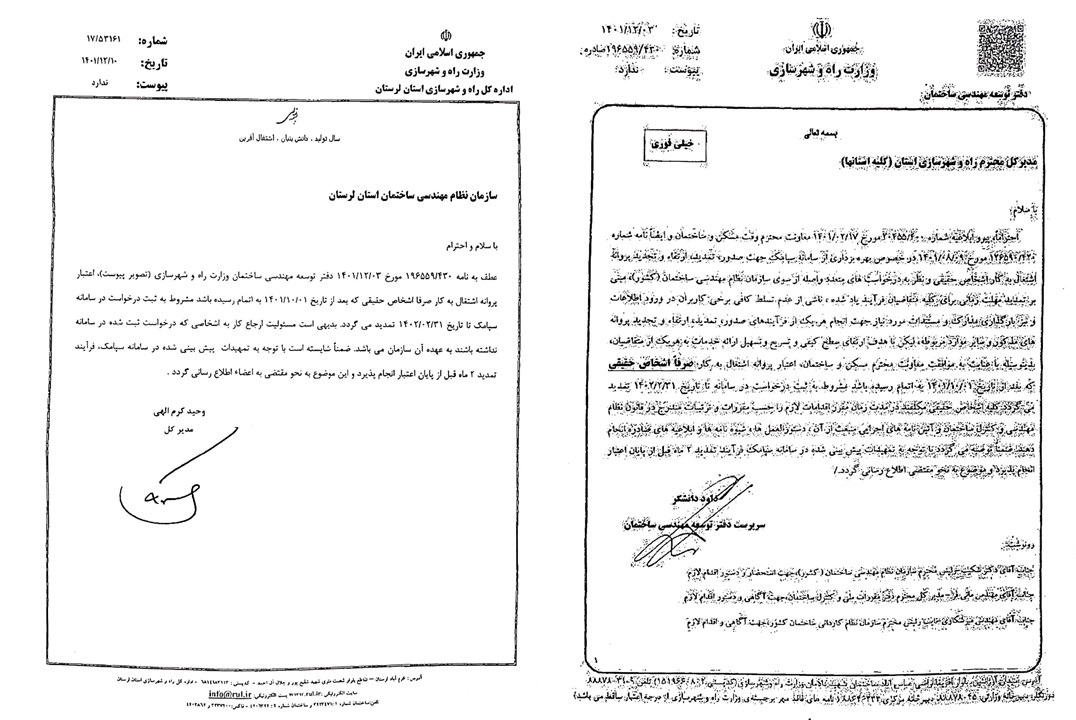 جمهوری اسلامی ایران
وزارت راه و شهرسازی
دفتر توسعه مهندسی ساختمان
تاریخ: ۱۴۰۱/۱۲/۰۳
شماره: ۱۹۶۵۵۹/۴۳۰صادره
پیوست: ندارد
بسمه تعالی
خیلی فوری
مدیرکل محترم راه و شهرسازی استان (کلیه استانها)
با سلام
احتراماً، پیرو ابلاغیه شماره مورخ ۱۴۰۱/۰۲/۱۷ معاونت محترم وقت مسکن و ساختمان و ایضاً نامه شماره
۱۲۶۵۹۰/۴۳۰ مورخ ۱۴۰۱/۰۸/۰۹ در خصوص بهره برداری از سامانه سیامک جهت صدور، تمدید، ارتقاء و تجدید پروانه
اشتغال به کار اشخاص حقیقی و نظر به درخواست های متعدد واصله از سوی سازمان نظام مهندسی ساختمان (کشور)، مبنی
بر تمدید مهلت زمانی برای کلیه متقاضیان فرآیند یاد شده ، ناشی از عدم تسلط کافی برخی کاربران در ورود اطلاعات
و نیز بارگذاری مدارک و مستندات مورد نیاز جهت انجام هریک از فرآیندهای صدور، تمدید، ارتقاء و تجدید پروانه
های مذکور و سایر موارد مربوطه، لیکن با هدف ارتقای سطح کیفی و تسریع و تسهیل ارائه خدمات به هریک از متقاضیان،
بدینوسیله با عنایت به موافقت معاونت محترم مسکن و ساختمان، اعتبار پروانه اشتغال به کار صرفاً اشخاص حقیقی
که بعد از تاریخ ۱۴۰۱/۱۰/۰۱ به اتمام رسیده باشد مشروط به ثبت درخواست در سامانه تا تاریخ ۱۴۰۲/۲/۳۱ تمدید
می گردد. کلیه اشخاص حقیقی مکلفند در مدت زمان مقرر اقدامات لازم را حسب مقررات و ترتیبات مندرج در قانون نظام
مهندسی و کنترل ساختمان و آئین نامه های اجرایی منبعث از آن ، دستورالعمل ها ، شیوه نامه ها و ابلاغیه های صادره انجام
دهند. ضمناً توصیه می گردد با توجه به تمهیدات پیش بینی شده در سامانه سیامک فرآیند تمدید ۲ ماه قبل از پایان اعتبار
انجام پذیرد و موضوع به نحو مقتضی اطلاع رسانی گردد./
داود دانشگر
سرپرست دفتر توسعه مهندسی ساختمان
رونوشت:
جناب آقای دکتر شکیب رئیس محترم سازمان نظام مهندسی ساختمان ( کشور)جهت استحضار و دستور اقدام لازم
جناب آقای مهندس مانی فر- مدیر کل محترم دفتر مقررات ملی و کنترل ساختمان،جهت آگاهی و دستور اقدام لازم
جناب آقای مهندس رئیس محترم سازمان نظام کاردانی ساختمان کشور،جهت آگاهی و اقدام لازم
۱
جمهوری اسلامی ایران
وزارت راه و شهرسازی
اداره کل راه و شهرسازی استان لرستان
شماره: ۱۷/۵۳۱۶۱
تاریخ: ۱۴۰۱/۱۲/۱۰
پیوست: ندارد
سال تولید ، دانش بنیان ، اشتغال آفرین
سازمان نظام مهندسی ساختمان استان لرستان
با سلام و احترام
عطف به نامه ۱۹۶۵۵۹/۴۳۰ مورخ ۱۴۰۱/۱۲/۰۳ دفتر توسعه مهندسی ساختمان وزارت راه و شهرسازی (تصویر پیوست)، اعتبار
پروانه اشتغال به کار صرفا اشخاص حقیقی که بعد از تاریخ ۱۴۰۱/۱۰/۰۱ به اتمام رسیده باشد مشروط به ثبت درخواست در سامانه
سیامک تا تاریخ ۱۴۰۲/۰۲/۳۱ تمدید می گردد. بدیهی است مسئولیت ارجاع کار به اشخاصی که درخواست ثبت شده در سامانه
نداشته باشند به عهده آن سازمان می باشد. ضمناً شایسته است با توجه به تمهیدات پیش بینی شده در سامانه سیامک، فرآیند
تمدید ۲ ماه قبل از پایان اعتبار انجام پذیرد و این موضوع به نحو مقتضی به اعضاء اطلاع رسانی گردد .
وحید کرم الهی
مدیر کل
آدرس : خرم آباد لرستان – تقاطع بلوار شصت متری شهید شفیع پور و جلال آل احمد - کدپستی : ۶۸۱۴۶۸۳۱۱۳ - اداره کل راه و شهرسازی استان لرستان
سایت الکترونیکی: www.rul.ir پست الکترونیکی info@rul.ir